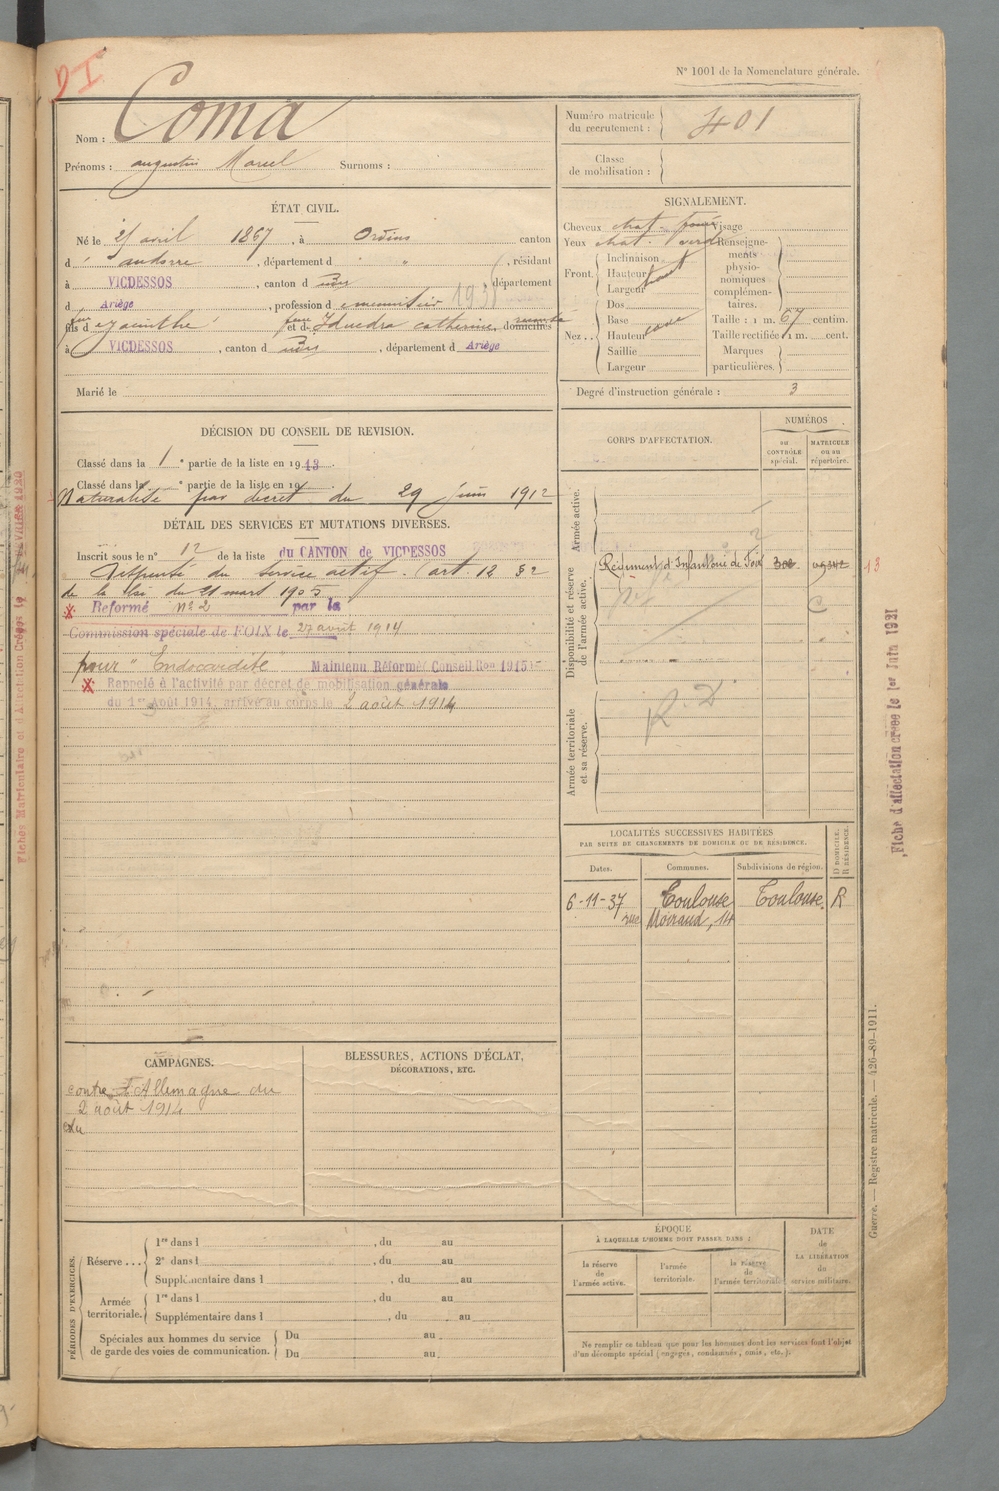 N° 1001 de la Nomenclature générale.
Nom : Coma
Prénoms : augustin Marcel Surnoms :
ÉTAT CIVIL.
Né le avril 1867, à Ordino canton
d andorre, département d " , résidant
à VICDESSOS, canton d , département
d Ariège, profession d
fils d et d Catherine, domiciliés
à VICDESSOS, canton d , département d Ariège
Marié le
DÉCISION DU CONSEIL DE REVISION.
Classé dans la 1e partie de la liste en 1913.
Classé dans la e partie de la liste en 19 .
Naturalisé par décret du 29 juin 1912
DÉTAIL DES SERVICES ET MUTATIONS DIVERSES.
Inscrit sous le n° 12 de la liste du CANTON de VICDESSOS
Dispensé du service actif. (art. 12 § 2
de la loi du 21 mars 1905
Reformé n° 2 par la
Commission spéciale de FOIX le 27 août 1914
pour "Endocardite" Maintenu Réformé Conseil Ron 1915
Rappelé à l'activité par décret de mobilisation générale
du 1er Août 1914, arrivé au corps le 2 août 1914
CAMPAGNES.
contre l'Allemagne du
2 août 1914
au
BLESSURES, ACTIONS D'ÉCLAT,
DÉCORATIONS, ETC.
PÉRIODES D'EXERCICES.
Réserve ...
1re dans l , du au
2e dans l , du au
Supplémentaire dans l , du au
Armée territoriale.
1re dans l , du au
Supplémentaire dans l , du au
Spéciales aux hommes du service
de garde des voies de communication.
Du au
Du au
Numéro matricule
du recrutement : 401
Classe
de mobilisation :
SIGNALEMENT.
Cheveux chat. foncé
Yeux chat. verd
Front.
Inclinaison
Hauteur haut
Largeur
Nez ..
Dos
Base
Hauteur
Saillie
Largeur
Visage
Renseigne-
ments
physio-
nomiques
complémen-
taires.
Taille : 1 m. 67 centim.
Taille rectifiée 1 m. cent.
Marques
particulières.
Degré d'instruction générale : 3
CORPS D'AFFECTATION.
NUMÉROS
au
CONTRÔLE
spécial.
MATRICULE
ou au
répertoire.
Armée active.
Disponibilité et réserve
de l'armée active.
Régiment d'Infanterie de Foix
Armée territoriale
et sa réserve.
R. D
LOCALITÉS SUCCESSIVES HABITÉES
PAR SUITE DE CHANGEMENTS DE DOMICILE OU DE RÉSIDENCE.
D DOMICILE.
R RÉSIDENCE.
Dates. Communes. Subdivisions de région.
6-11-37 Toulouse Toulouse. R
rue , 14
ÉPOQUE
À LAQUELLE L'HOMME DOIT PASSER DANS :
la réserve
de
l'armée active.
l'armée
territoriale.
la réserve
de
l'armée territoriale
DATE
de
LA LIBÉRATION
du
service militaire.
Ne remplir ce tableau que pour les hommes dont les services font l'objet
d'un décompte spécial (engagés, condamnés, omis, etc.).
Fiche d'affectation créée le 1er Juin 1921
Guerre. — Registre matricule. — 426-89-1911.